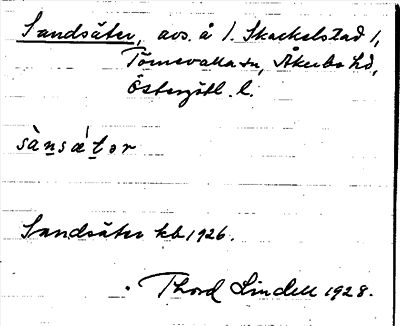 Sandsäter, avs. å 1. Skackelstad 1,
Törnevalla sn, Åkerbo hd,
Östergötl. l.
sànsæ̀tər
Sandsäter kb 1926.
Thord Lindell 1928.